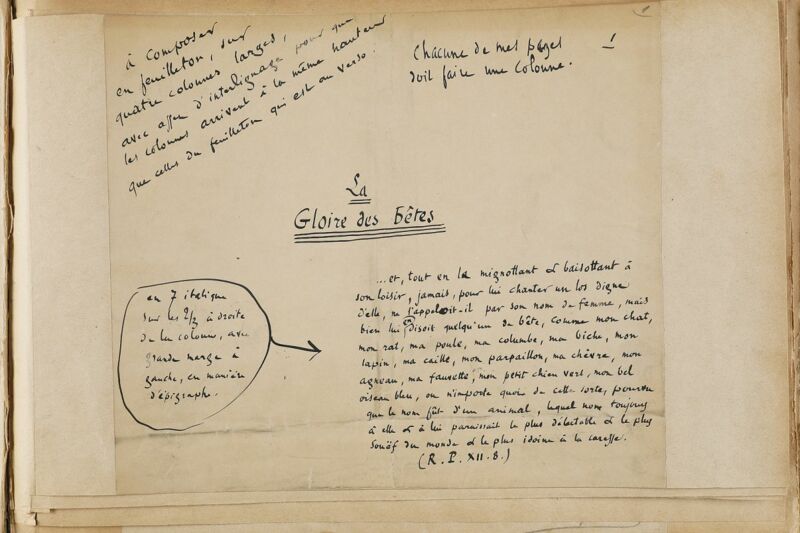 à composer
en feuilleton, sur
quatre colonnes larges,
avec assez d'interlignage pour que
les colonnes arrivent à la même hauteur
que celles du feuilleton qui est au verso.
Chacune de mes pages
doit faire une colonne.
1
La
Gloire des bêtes
en 7 italique
sur les 2/3 à droite
de la colonne, avec
grande marge à
gauche, en manière
d'épigraphe.
...et, tout en la mignottant & baisottant à
son loisir, jamais, pour lui chanter un los digne
d'elle, ne l'appeloit-il par son nom de femme, mais
bien lui disoit quelqu'un de bête, comme mon chat,
mon rat, ma poule, ma colombe, ma biche, mon
lapin, ma caille, mon parpaillon, ma chèvre, mon
agneau, ma fauvette, mon petit chien vert, mon bel
oiseau bleu, ou n'importe quoi de cette sorte, pourvu
que le nom fût d'un animal, lequel nom toujours
à elle & à lui paraissait le plus délectable & le plus
souëf du monde & le plus idoine à la caresse.
(R. P. XII. 8.)